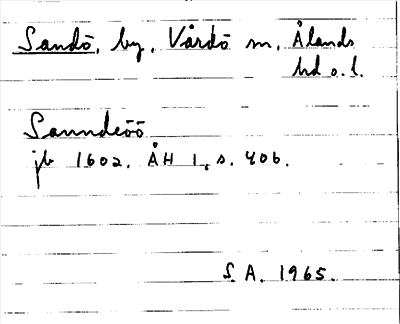 Sandö, by, Vårdö sn, Ålands
hd o. l.
Sanndeöö
jb 1602. ÅH 1, s. 406.
S. A. 1965.